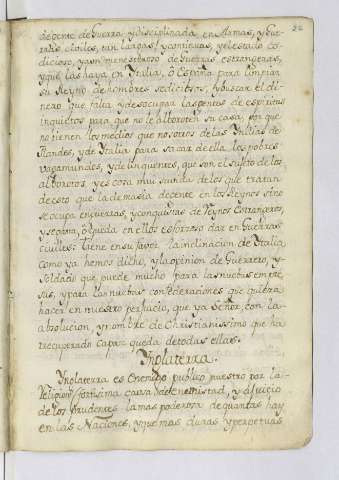 de gente de Guerra y disciplinada, en Armas, y Guerras civiles, tan largas, y continuas, y el estado codicioso, y aun menesteroso de Guerras estrangeras, y que las haya en Italia, ô España para limpiar su Reyno de hombres sediciosos, y buscar el dinero que falta y desocupar las gentes de espiritus inquietos para que no le alboroten su casa, por que no tienen los medios que nosotros de las Yndias de Flandes, y de Italia para sacar de ella los pobres vagamundos, y delinquentes, que son el sujeto de los alborotos y es cosa mui savida de los que tratan de esto que la demasia de gente en los Reynos sino se ocupa en guerras, y conquistas de Reynos Estrangeros, y se
queda en ellos es forzoso dar en Guerras civiles. Tiene en su favor la inclinacion de Italia como ya hemos dicho, y la opinion de Guerrero, y Soldado que puede mucho para las nuebas empresas, y para las nuebas confederaciones que quiera hacer en nuestro perjuicio, que ya Señor, con la absolucion, y nombre de Christianissimo que ha recuperado capaz queda de todas ellas.
Ynglaterra.
Ynglaterra es Enemigo publico nuestro por la Religion fortisima causa de Enemistad, y a juicio de los prudentes la mas poderosa de quantas hay en las Naciones, y que mas duras y perpetuas